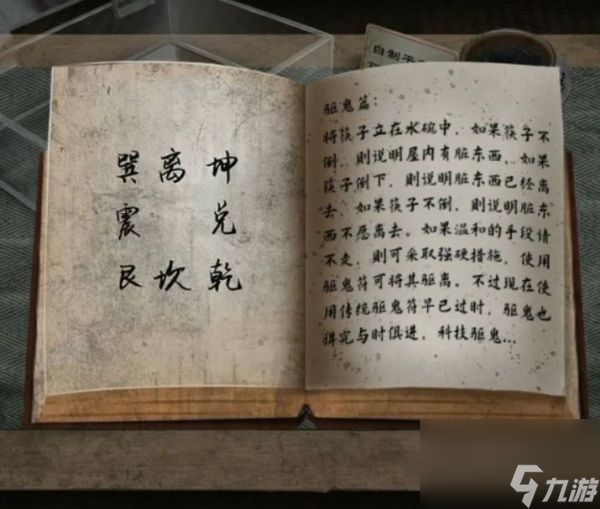 自制干
巽 离 坤
震 兑
艮 坎 乾
驱鬼篇：
将筷子立在水碗中，如果筷子不
倒，则说明屋内有脏东西，如果
筷子倒下，则说明脏东西已经离
去，如果筷子不倒，则说明脏东
西不愿离去。如果温和的手段请
不走，则可采取强硬措施，使用
驱鬼符可将其驱离。不过现在使
用传统驱鬼符早已过时，驱鬼也
得究与时俱进，科技驱鬼...
九游